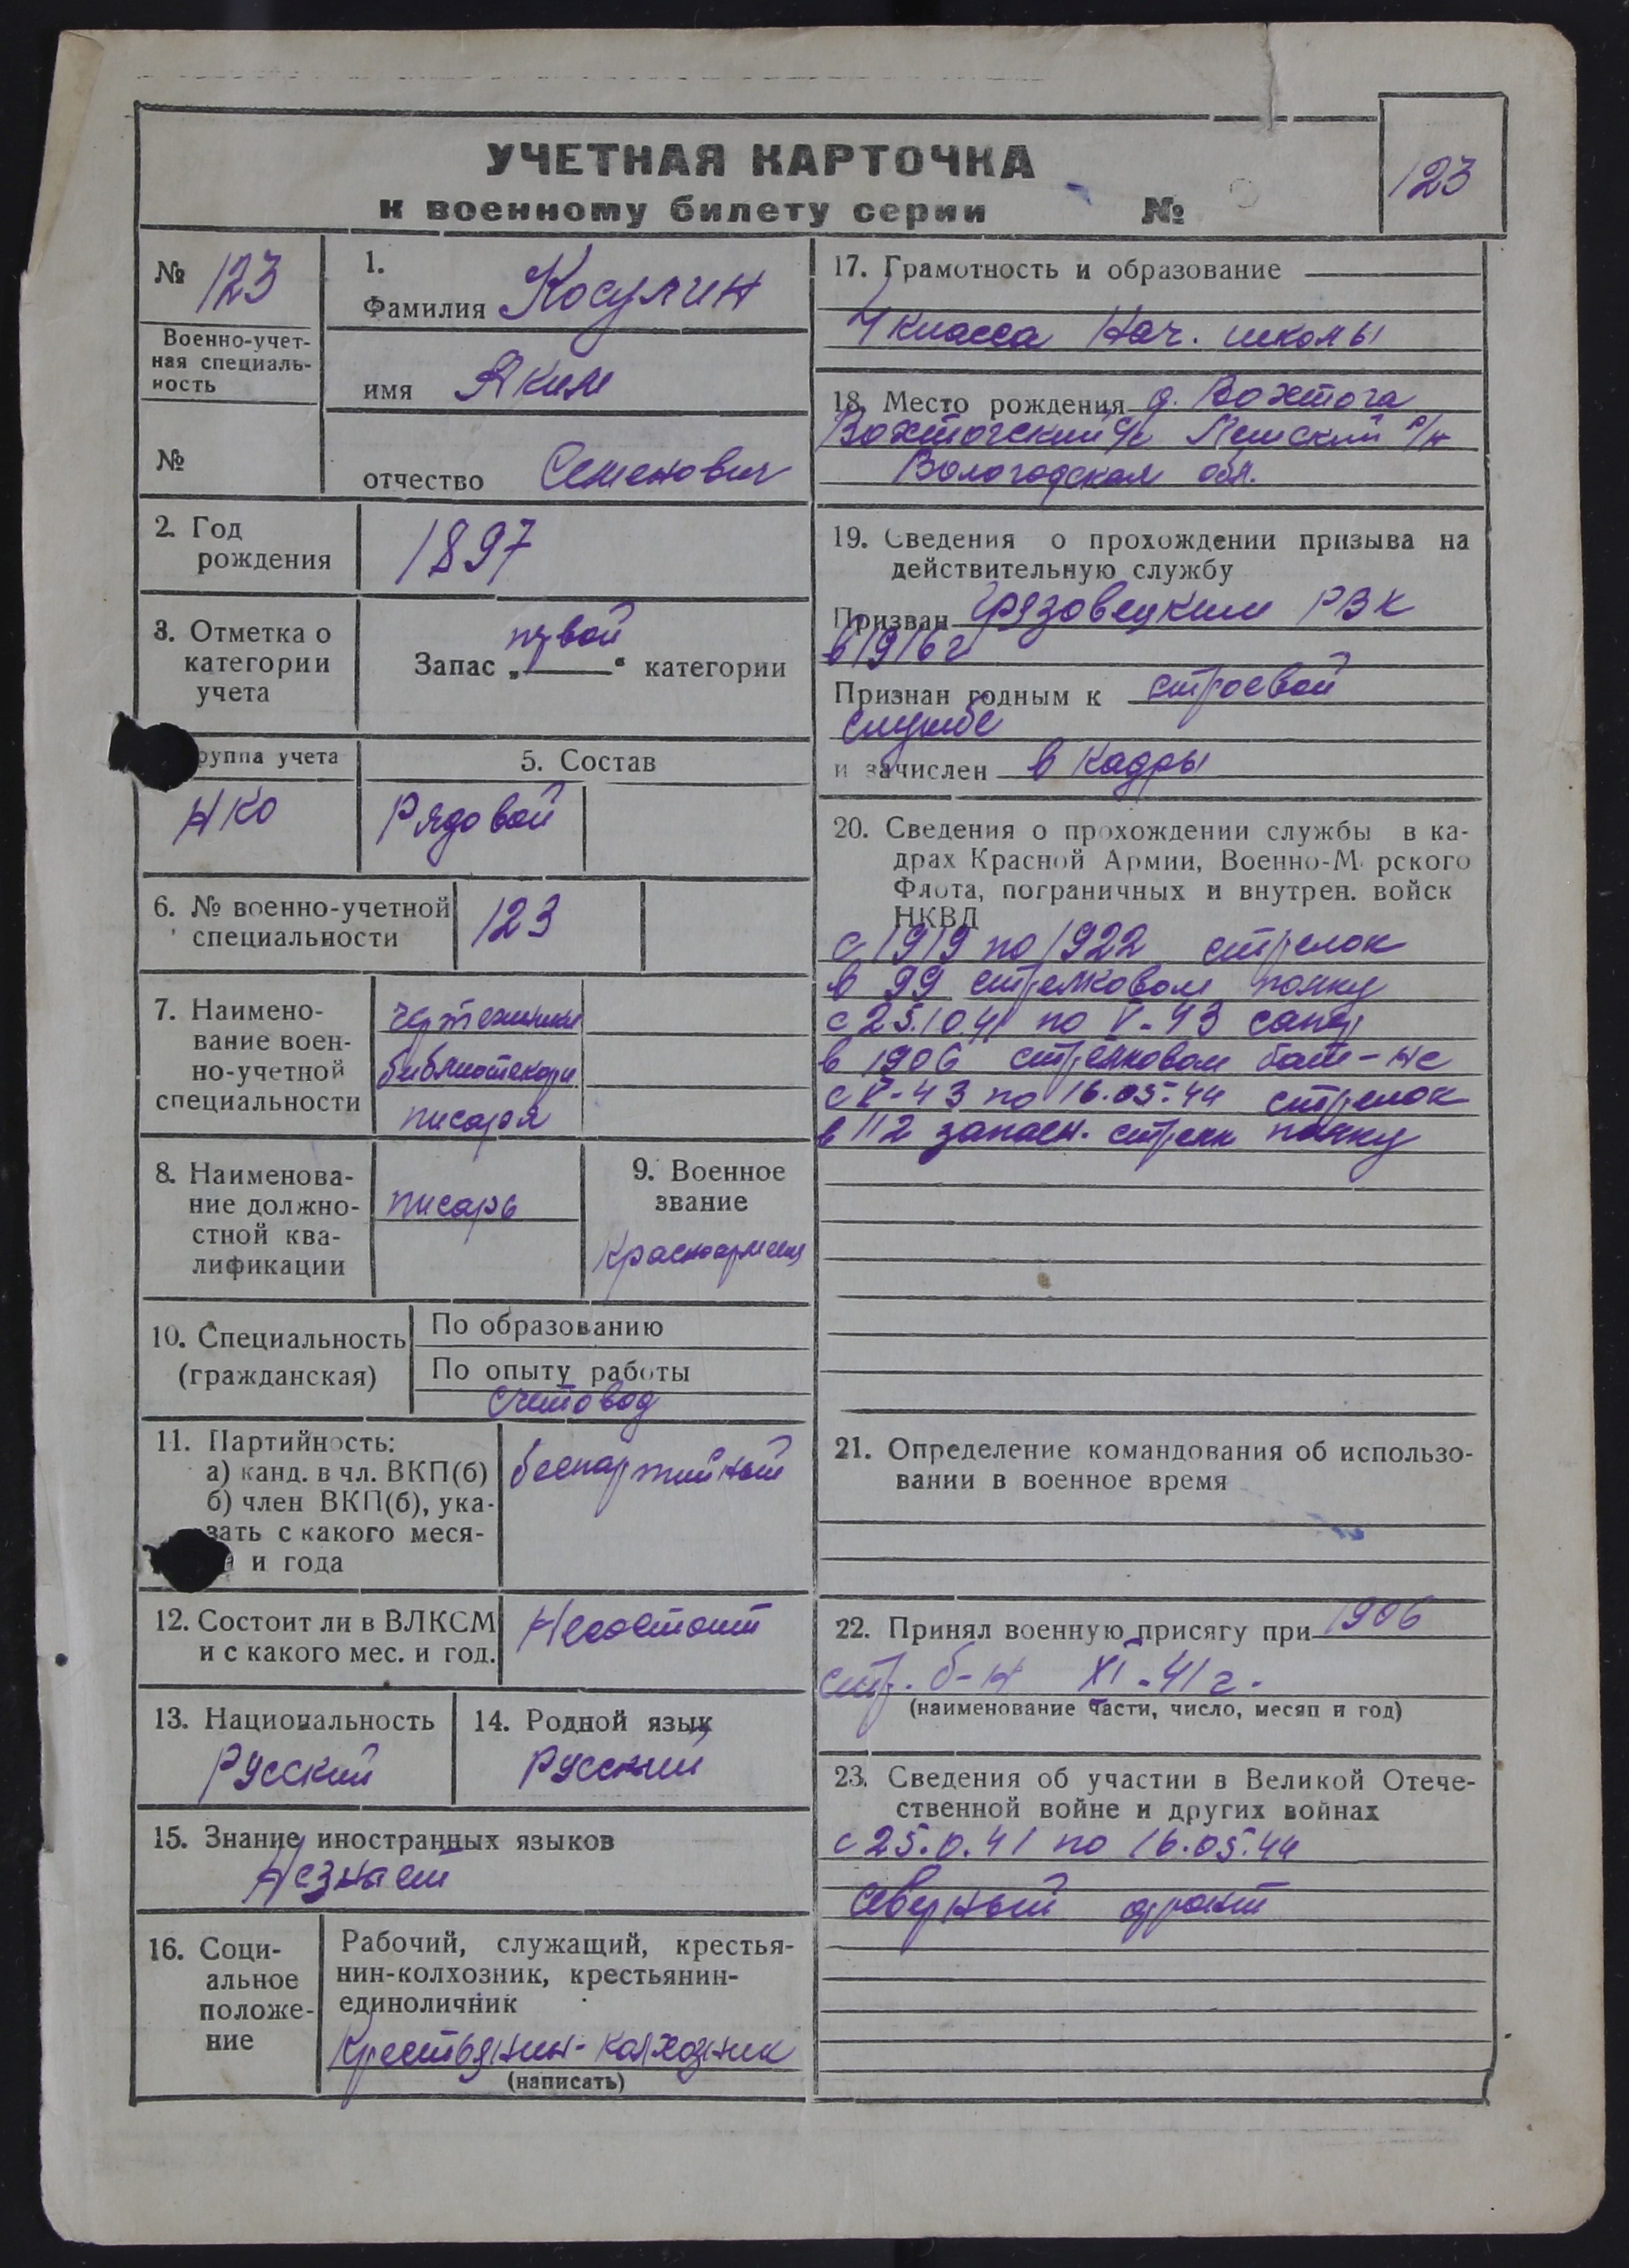 УЧЕТНАЯ КАРТОЧКА
к военному билету серии №
123
№ 123
Военно-учет-
ная специаль-
ность
№
1.
Фамилия Косулин
имя Яким
отчество Семенович
2. Год
рождения
1897
3. Отметка о
категории
учета
первой
Запас „ “ категории
руппа учета
НКО
5. Состав
Рядовой
6. № военно-учетной
специальности
123
7. Наимено-
вание воен-
но-учетной
специальности
чертежники
библиотекари
писаря
8. Наименова-
ние должно-
стной ква-
лификации
писарь
9. Военное
звание
Красноармеец
10. Специальность
(гражданская)
По образованию
По опыту работы
Счетовод
11. Партийность:
а) канд. в чл. ВКП(б)
б) член ВКП(б), ука-
зать с какого меся-
и года
беспартийный
12. Состоит ли в ВЛКСМ
и с какого мес. и год.
Несостоит
13. Национальность
Русский
14. Родной язык
Русский
15. Знание иностранных языков
Незнает
16. Соци-
альное
положе-
ние
Рабочий, служащий, крестья-
нин-колхозник, крестьянин-
единоличник
Крестьянин-колхозник
(написать)
17. Грамотность и образование
4 класса Нач. школы
18. Место рождения д. Вохтога
Вохтогский с/с Лежский р/н
Вологодская обл.
19. Сведения о прохождении призыва на
действительную службу
Призван Грязовецким РВК
в 1916 г
Признан годным к строевой
службе
и зачислен в кадры
20. Сведения о прохождении службы в ка-
драх Красной Армии, Военно-М рского
Флота, пограничных и внутрен. войск
НКВД
с 1919 по 1922 стрелок
в 99 стрелковом полку
с 25.10 41 по V-43 сапер
в 1906 стрелковом бат-не
с V-43 по 16.05.44 стрелок
в 112 запасн. стрелк полку
21. Определение командования об использо-
вании в военное время
22. Принял военную присягу при 1906
стр. б-н XI-41 г.
(наименование части, число, месяц и год)
23. Сведения об участии в Великой Отече-
ственной войне и других войнах
с 25.0.41 по 16.05.44
Северный фронт